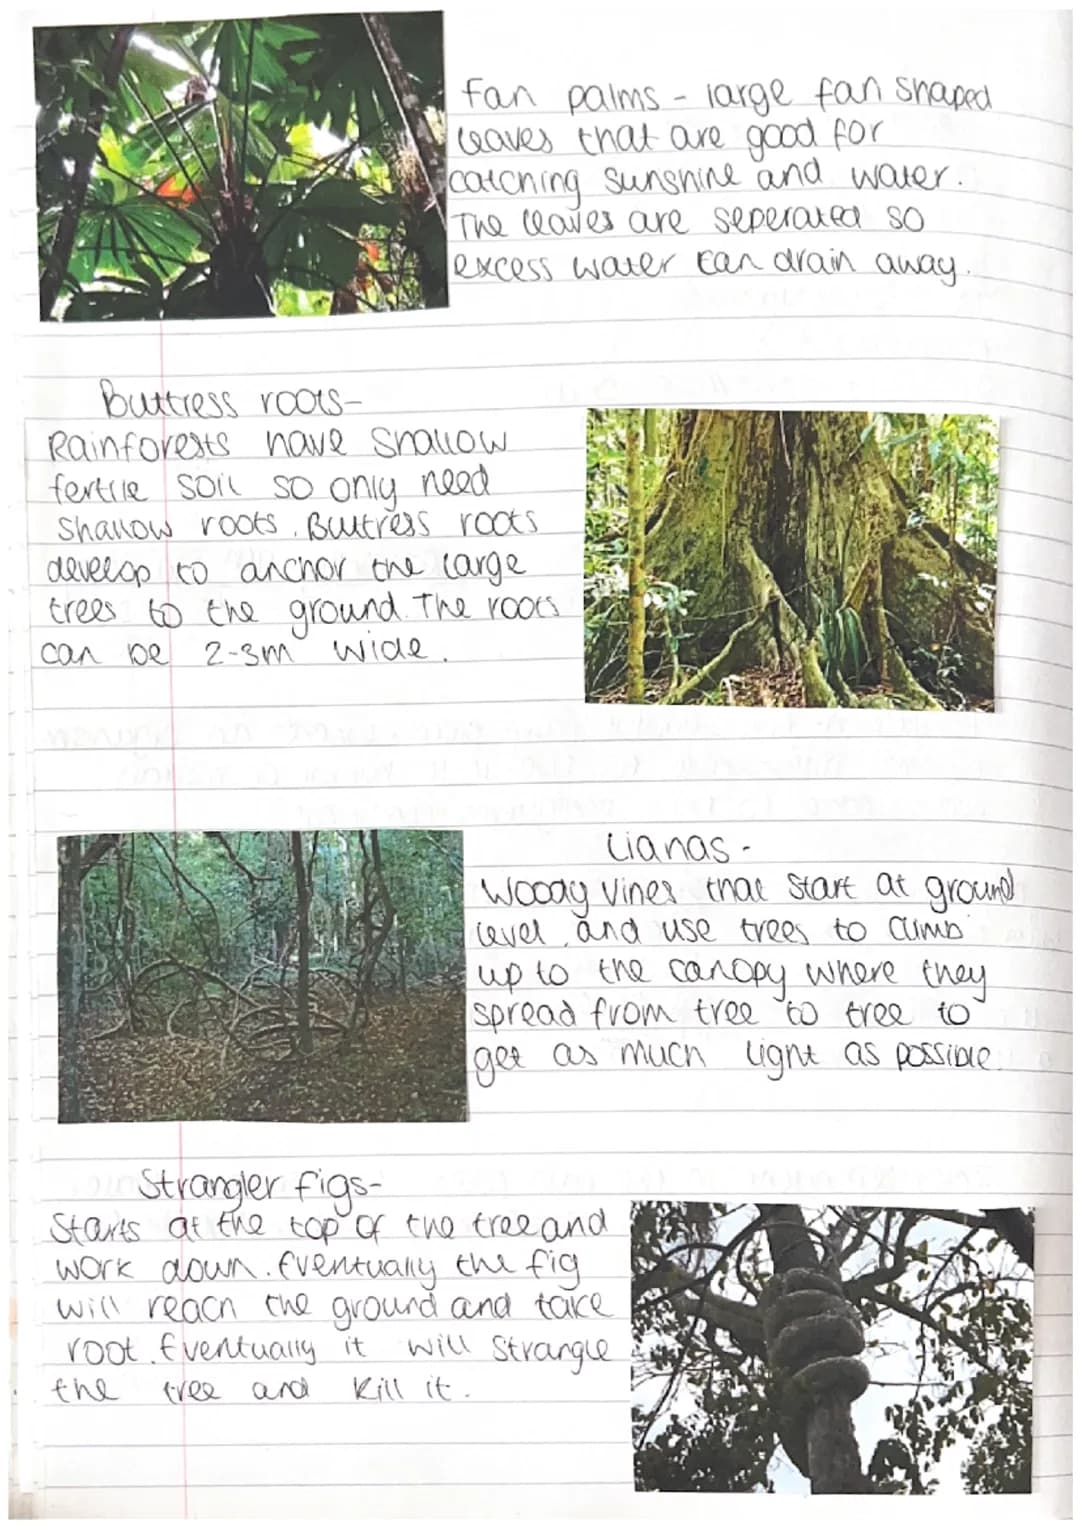 Fan palms - large fan shaped
leaves that are good for
catching sunshine and water.
The leaves are seperated so
excess water can drain away.
Buttress roots-
Rainforests have shallow
fertile soil so only need
shallow roots. Buttress roots
develop to anchor the large
trees to the ground. The roots
can be 2-3m wide.
Lianas -
Woody vines that start at ground
level, and use trees to climb
up to the canopy where they
spread from tree to tree to
get as much light as possible.
Strangler figs-
Starts at the top of the tree and
work down. Eventually the fig
will reach the ground and take
root. Eventually it will strangle
the tree and kill it.